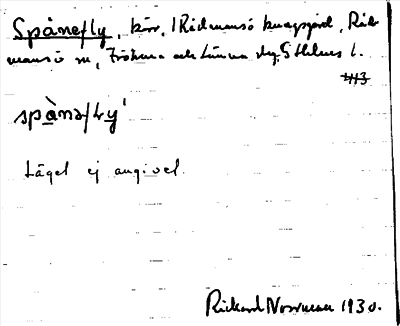 Spånefly, kärr, 1 Rådmansö kungsgård, Råd-
mansö sn, Frötuna och Länna skg. Sthlms l.
spànəfly
Läget ej angivet.
Rickard Norrman 1930.